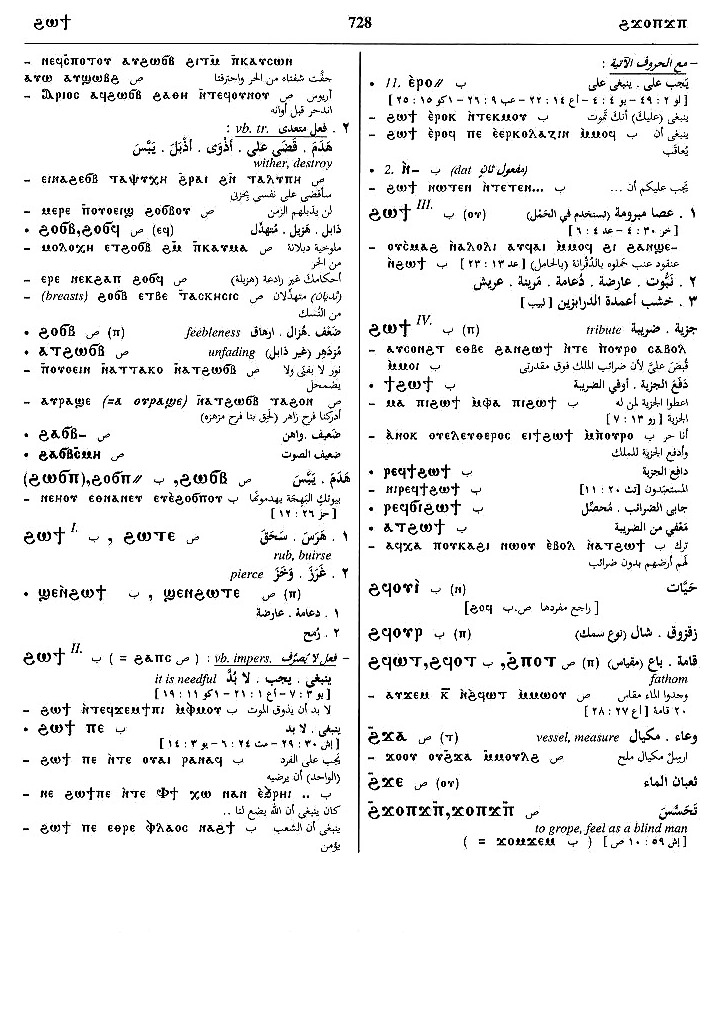 ϩⲱϯ 728 ϩϫⲟⲡϫⲡ
– ⲛⲉϥⲥⲡⲟⲧⲟⲩ ⲁⲩϩⲱϭⲃ ϩⲓⲧⲙ̄ ⲡ̄ⲕⲁⲩⲥⲱⲛ
ⲁⲩⲱ ⲁⲩϣⲱⲃϩ ص جفّت شفتاه من الحر واحترقتا
– Ⲁⲣⲓⲟⲥ ⲁϥϩⲱϭⲃ ϩⲁⲑⲏ ⲛ̄ⲧⲉϥⲟⲩⲛⲟⲩ ص آريوس
اندحر قبل أوانه
٢ . فعل متعدى vb. tr. :
هَدَمَ . قَضَى على . أذْوَى . أذْبَلَ . يَبَّسَ
wither, destroy
– ⲉⲓⲛⲁϩⲉϭⲃ ⲧⲁⲯⲩⲭⲏ ϩⲣⲁⲓ ϩⲛ̄ ⲧⲁⲗⲩⲡⲏ ص
سأقضي على نفسي بحزني
– ⲙⲉⲣⲉ ⲡ̄ⲟⲩⲟⲉⲓϣ ϩⲟϭⲃⲟⲩ ص لن يذبلهم الزمن
• ϩⲟϭⲃ̄,ϩⲟϭϥ ص (eq) ذابل . هَزيل . مُتهدِّل
– ⲙⲟⲗⲟⲭⲏ ⲉⲧϩⲟϭⲃ ϩⲙ̄ ⲡ̄ⲕⲁⲩⲙⲁ ص ملوخية دبلانة
من الحر
– ⲉⲣⲉ ⲛⲉⲕϩⲁⲡ ϩⲟϭϥ ص أحكامك غير رادعة (هزيلة)
– (breasts) ϩⲟϭⲃ ⲉⲧⲃⲉ ⲧⲁⲥⲕⲏⲥⲓⲥ ص (ثديان) متهدلان
من النُسك
• ϩⲟϭⲃ̄ ص (ⲡ) feebleness ضَعْف . هُزال . ارهاق
• ⲁⲧϩⲱϭⲃ ص unfading مُزدهِر (غير ذابل)
– ⲡ̄ⲟⲩⲟⲉⲓⲛ ⲛ̄ⲁⲧⲧⲁⲕⲟ ⲛ̄ⲁⲧϩⲱϭⲃ̄ ص نور لا يفنى ولا
يضمحل
– ⲁⲩⲣⲁϣⲉ (=ⲁ ⲟⲩⲣⲁϣⲉ) ⲛ̄ⲁⲧϩⲱϭⲃ ⲧⲁϩⲟⲛ ص
أدركنا فرح زاهر (لحق بنا فرح مزهزه)
• ϩⲁϭⲃ– ص ضعيف . واهن
• ϩⲁϭⲃ̄ⲥⲙⲏ ص ضعيف الصوت
(ϩⲱϭⲡ),ϩⲟϭⲡ// ب ,ϩⲱϭⲃ ص هَدَمَ . يَبَّسَ
– ⲛⲉⲛⲟⲩ ⲉⲑⲛⲁⲛⲉⲩ ⲉⲩⲉ̀ϩⲟϭⲡⲟⲩ ب بيوتكِ البَهيجة يهدمونها
[حز ٢٦ : ١٢]
ϩⲱϯ I. ب , ϩⲱⲧⲉ ص ١ . هَرَسَ . سَحَقَ
rub, buirse
pierce ٢ . غَرَزَ . وَخَزَ
• ϣⲉⲛ̀ϩⲱϯ ب , ϣⲉⲛϩⲱⲧⲉ ص (ⲡ)
١ . دعامة . عارضة
٢ . رُمح
ϩⲱϯ II. ب ( = ϩⲁⲡⲥ ص ) : vb. impers. فعل لا يُصَرَّف –
it is needful ينبغي . يجب . لا بُدَّ
[يو ٣ : ٧ – أع ١ : ٢١ – ١كو ١١ : ١٩]
– ϩⲱϯ ⲛ̀ⲧⲉϥϫⲉⲙϯⲡⲓ ⲙ̀ⲫⲙⲟⲩ ب لا بد أن يذوق الموت
• ϩⲱϯ ⲡⲉ ب ينبغي . لا بد
[إش ٣٠ : ٢٩ – مت ٢٤ : ٦ – يو ٣ : ١٤]
– ϩⲱϯ ⲡⲉ ⲛ̀ⲧⲉ ⲟⲩⲁⲓ ⲣⲁⲛⲁϥ ب يجب على الفرد
(الواحد) أن يرضيه
– ⲛⲉ ϩⲱϯⲡⲉ ⲛ̀ⲧⲉ Ⲫϯ ⲭⲱ ⲛⲁⲛ ⲉϧⲣⲏⲓ .. ب
كان ينبغي أن الله يضع لنا ..
– ϩⲱϯ ⲡⲉ ⲉⲑⲣⲉ ⲫ̀ⲗⲁⲟⲥ ⲛⲁϩϯ ب ينبغي أن الشعب
يؤمن
– مع الحروف الآتية :
• 11. ⲉ̀ⲣⲟ// ب يَجب على . ينبغي على
[لو ٢ : ٤٩ – يو ٤ : ٤ – أع ١٤ : ٢٢ – عب ٩ : ٢٦ – ١كو ١٥ : ٢٥]
– ϩⲱϯ ⲉ̀ⲣⲟⲕ ⲛ̀ⲧⲉⲕⲙⲟⲩ ب ينبغي (عليك) أنك تموت
– ϩⲱϯ ⲉ̀ⲣⲟϥ ⲡⲉ ⲉ̀ⲉⲣⲕⲟⲗⲁⲍⲓⲛ ⲙ̀ⲙⲟϥ ب ينبغي أن
يُعاقَب
• 2. ⲛ̀– ب (dat مفعول ثانٍ)
– ϩⲱϯ ⲛⲱⲧⲉⲛ ⲛ̀ⲧⲉⲧⲉⲛ... ب يجب عليكم أن ...
ϩⲱϯ III. ب (ⲟⲩ) ١ . عصا مبرومة (تستخدم في الحَمْل)
[خر ٣٠ : ٤ – عد ٤ : ٦]
– ⲟⲩⲥⲙⲁϩ ⲛ̀ⲁⲗⲟⲗⲓ ⲁⲩϥⲁⲓ ⲙ̀ⲙⲟϥ ϩⲓ ϩⲁⲛϣⲉ–
ⲛ̀ϩⲱϯ ب [عد ١٣ : ٢٣] عنقود عنب حَملوه بالدُقْرانة (بالحامل)
٢ . نَبُّوت . عارضة . دُعامة . مَرينة . عريش
٣ . خشب أعمدة الدرابزين [لبيب]
ϩⲱϯ IV. ب (ⲡⲓ) tribute جزية . ضريبة
– ⲁⲩⲥⲟⲛϩⲧ ⲉⲑⲃⲉ ϩⲁⲛϩⲱϯ ⲛ̀ⲧⲉ ⲡ̀ⲟⲩⲣⲟ ⲥⲁⲃⲟⲗ
ⲙ̀ⲙⲟⲓ ب قُبضَ عليَّ لأن ضرائب الملك فوق مقدرتي
• ϯϩⲱϯ ب دفَعَ الجزية . أوفى الضريبة
– ⲙⲁ ⲡⲓϩⲱϯ ⲙ̀ⲫⲁ ⲡⲓϩⲱϯ ب اعطوا الجزية لمن له
الجزية [رو ١٣ : ٧]
– ⲁ̀ⲛⲟⲕ ⲟⲩⲉⲗⲉⲩⲑⲉⲣⲟⲥ ⲉⲓϯϩⲱϯ ⲙ̀ⲡⲟⲩⲣⲟ ب أنا حر
وأدفع الجزية للملك
• ⲣⲉϥϯϩⲱϯ ب دافع الجزية
– ⲛⲓⲣⲉϥϯϩⲱϯ ب المستعبَدون [تث ٢٠ : ١١]
• ⲣⲉϥϭⲓϩⲱϯ ب جابى الضرائب . مُحصِّل
• ⲁⲧϩⲱϯ ب مَعْفي من الضريبة
– ⲁϥⲭⲁ ⲡⲟⲩⲕⲁϩⲓ ⲛⲱⲟⲩ ⲉ̀ⲃⲟⲗ ⲛ̀ⲁⲧϩⲱϯ ب ترك
لهم أرضهم بدون ضرائب
ϩϥⲟⲩⲓ̀ ب (ⲛ) حَيَّات
[راجع مفردها ص.ب ϩⲟϥ]
ϩϥⲟⲩⲣ ب (ⲡ) زقزوق . شال (نوع سمك)
ϩϥⲱⲧ,ϩϥⲟⲧ ب ,ϩ̄ⲡⲟⲧ ص (ⲡⲓ) قامة . باع (مقياس)
fathom
– ⲁⲩϫⲉⲙ ⲕ̄ ⲛ̀ϩϥⲱⲧ ⲙ̀ⲙⲱⲟⲩ ص وجدوا الماء مقاس
٢٠ قامة [أع ٢٧ : ٢٨]
ϩ̄ϫⲁ ص (ⲧ) vessel, measure وعاء . مكيال
– ϫⲟⲟⲩ ⲟⲩϩ̄ϫⲁ ⲙ̀ⲙⲟⲩⲗϩ ص ارسِلْ مكيال ملح
ϩ̄ϫⲉ ص (ⲟⲩ) ثعبان الماء
ϩ̄ϫⲟⲡϫⲡ̄,ϫⲟⲡϫⲡ̄ ص تَحَسَّسَ
to grope, feel as a blind man
( = ϫⲟⲙϫⲉⲙ ب ) [إش ٥٩ : ١٠ ص]